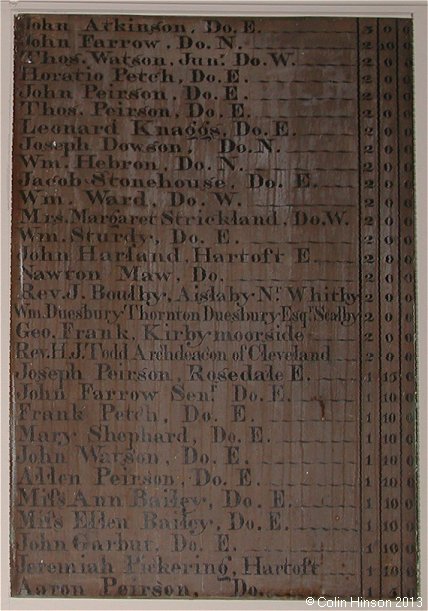 John Atkinson, Do. E. 3 0 0
John Farrow, Do. N. 2 10 0
Thos. Watson, Junr. Do. W. 2 0 0
Horatio Petch, Do. E. 2 0 0
John Peirson, Do. E. 2 0 0
Thos. Peirson, Do. E. 2 0 0
Leonard Knaggs, Do. E. 2 0 0
Joseph Dowson, Do. N. 2 0 0
Wm. Hebron, Do. N. 2 0 0
Jacob Stonehouse, Do. E. 2 0 0
Wm. Ward, Do. W. 2 0 0
Mrs. Margaret Strickland, Do. W. 2 0 0
Wm. Sturdy, Do. E. 2 0 0
John Harland, Hartoft E. 2 0 0
Nawton Maw, Do. 2 0 0
Rev. J. Boulby, Aislaby Nr. Whitby 2 0 0
Wm. Duesbury Thornton Duesbury Esqr. Scalby 2 0 0
Geo. Frank, Kirby-moorside 2 0 0
Rev. H.J. Todd Archdeacon of Cleveland 2 0 0
Joseph Peirson, Rosedale E. 1 15 0
John Farrow Senr. Do. E. 1 10 0
Frank Petch, Do. E. 1 10 0
Mary Shephard, Do. E. 1 10 0
John Watson, Do. E. 1 10 0
Allen Peirson, Do. E. 1 10 0
Miſs Ann Bailey, Do. E. 1 10 0
Miſs Ellen Bailey, Do. E. 1 10 0
John Garbut, Do. E. 1 10 0
Jeremiah Pickering, Hartoft 1 10 0
Aaron Peirson, Do.
© Colin Hinson 2013